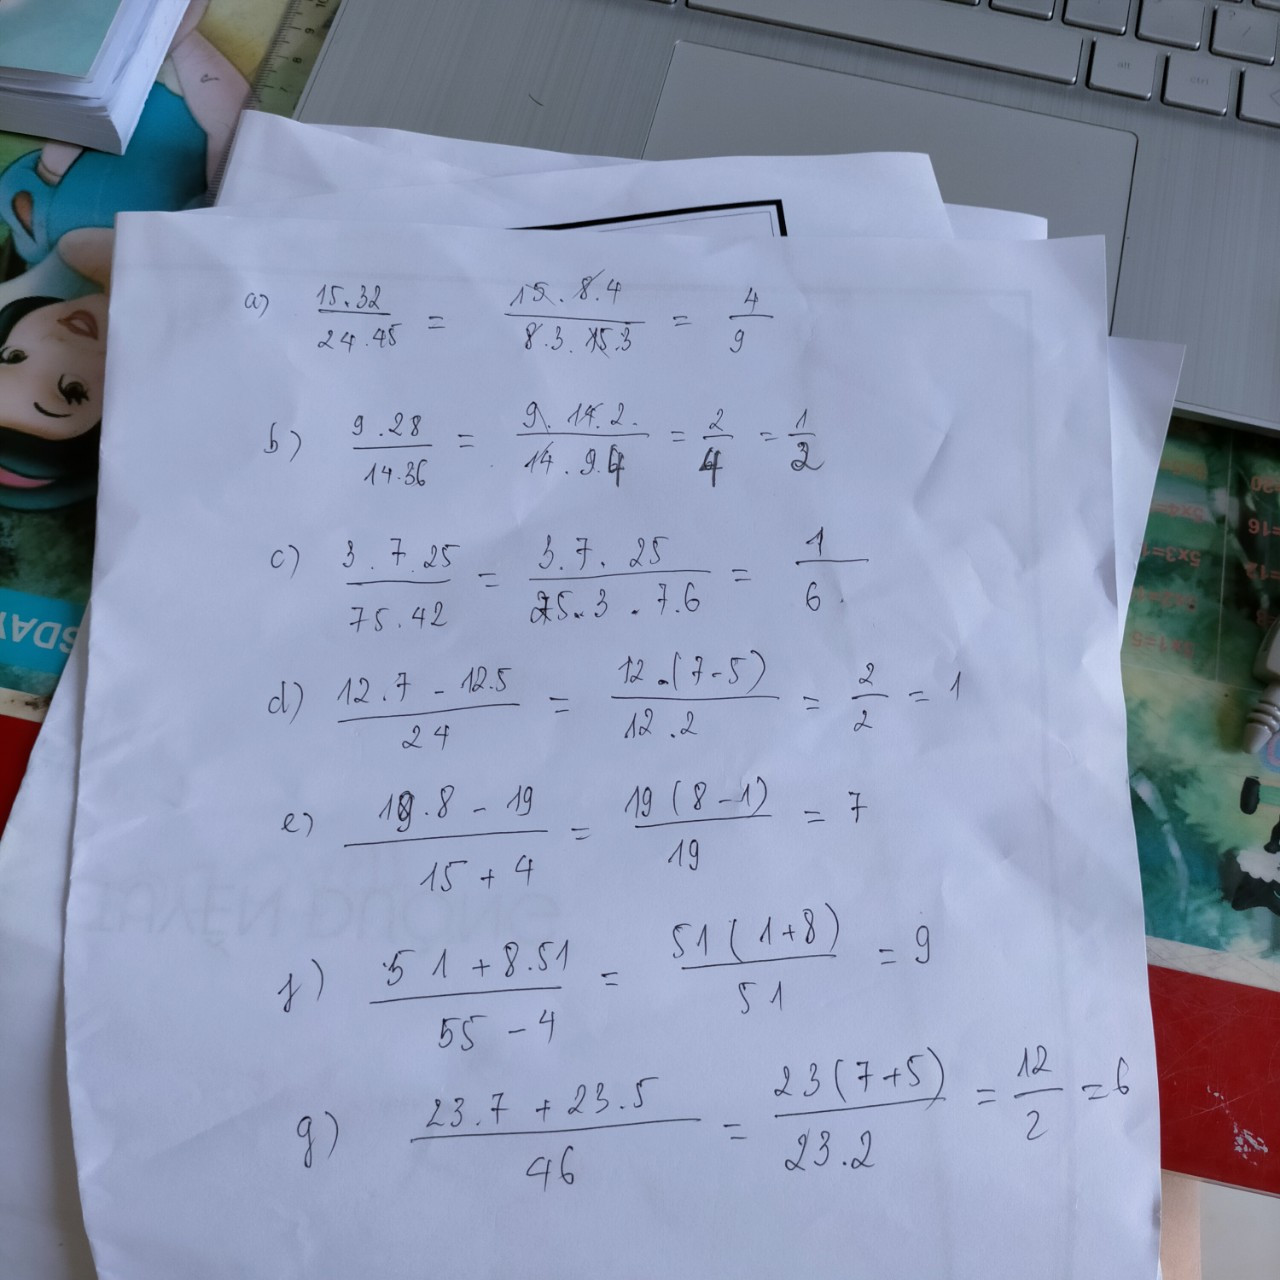 alt
ctrl
a) 15.32 / 24.45 = 15.8.4 / 8.3.15.3 = 4 / 9
b) 9.28 / 14.36 = 9.14.2. / 14.9.4 = 2 / 4 = 1 / 2
c) 3.7.25 / 75.42 = 3.7.25 / 25.3.7.6 = 1 / 6.
d) 12.7 - 12.5 / 24 = 12.(7-5) / 12.2 = 2 / 2 = 1
e) 19.8 - 19 / 15 + 4 = 19(8-1) / 19 = 7
f) 51 + 8.51 / 55 - 4 = 51(1+8) / 51 = 9
g) 23.7 + 23.5 / 46 = 23(7+5) / 23.2 = 12 / 2 = 6